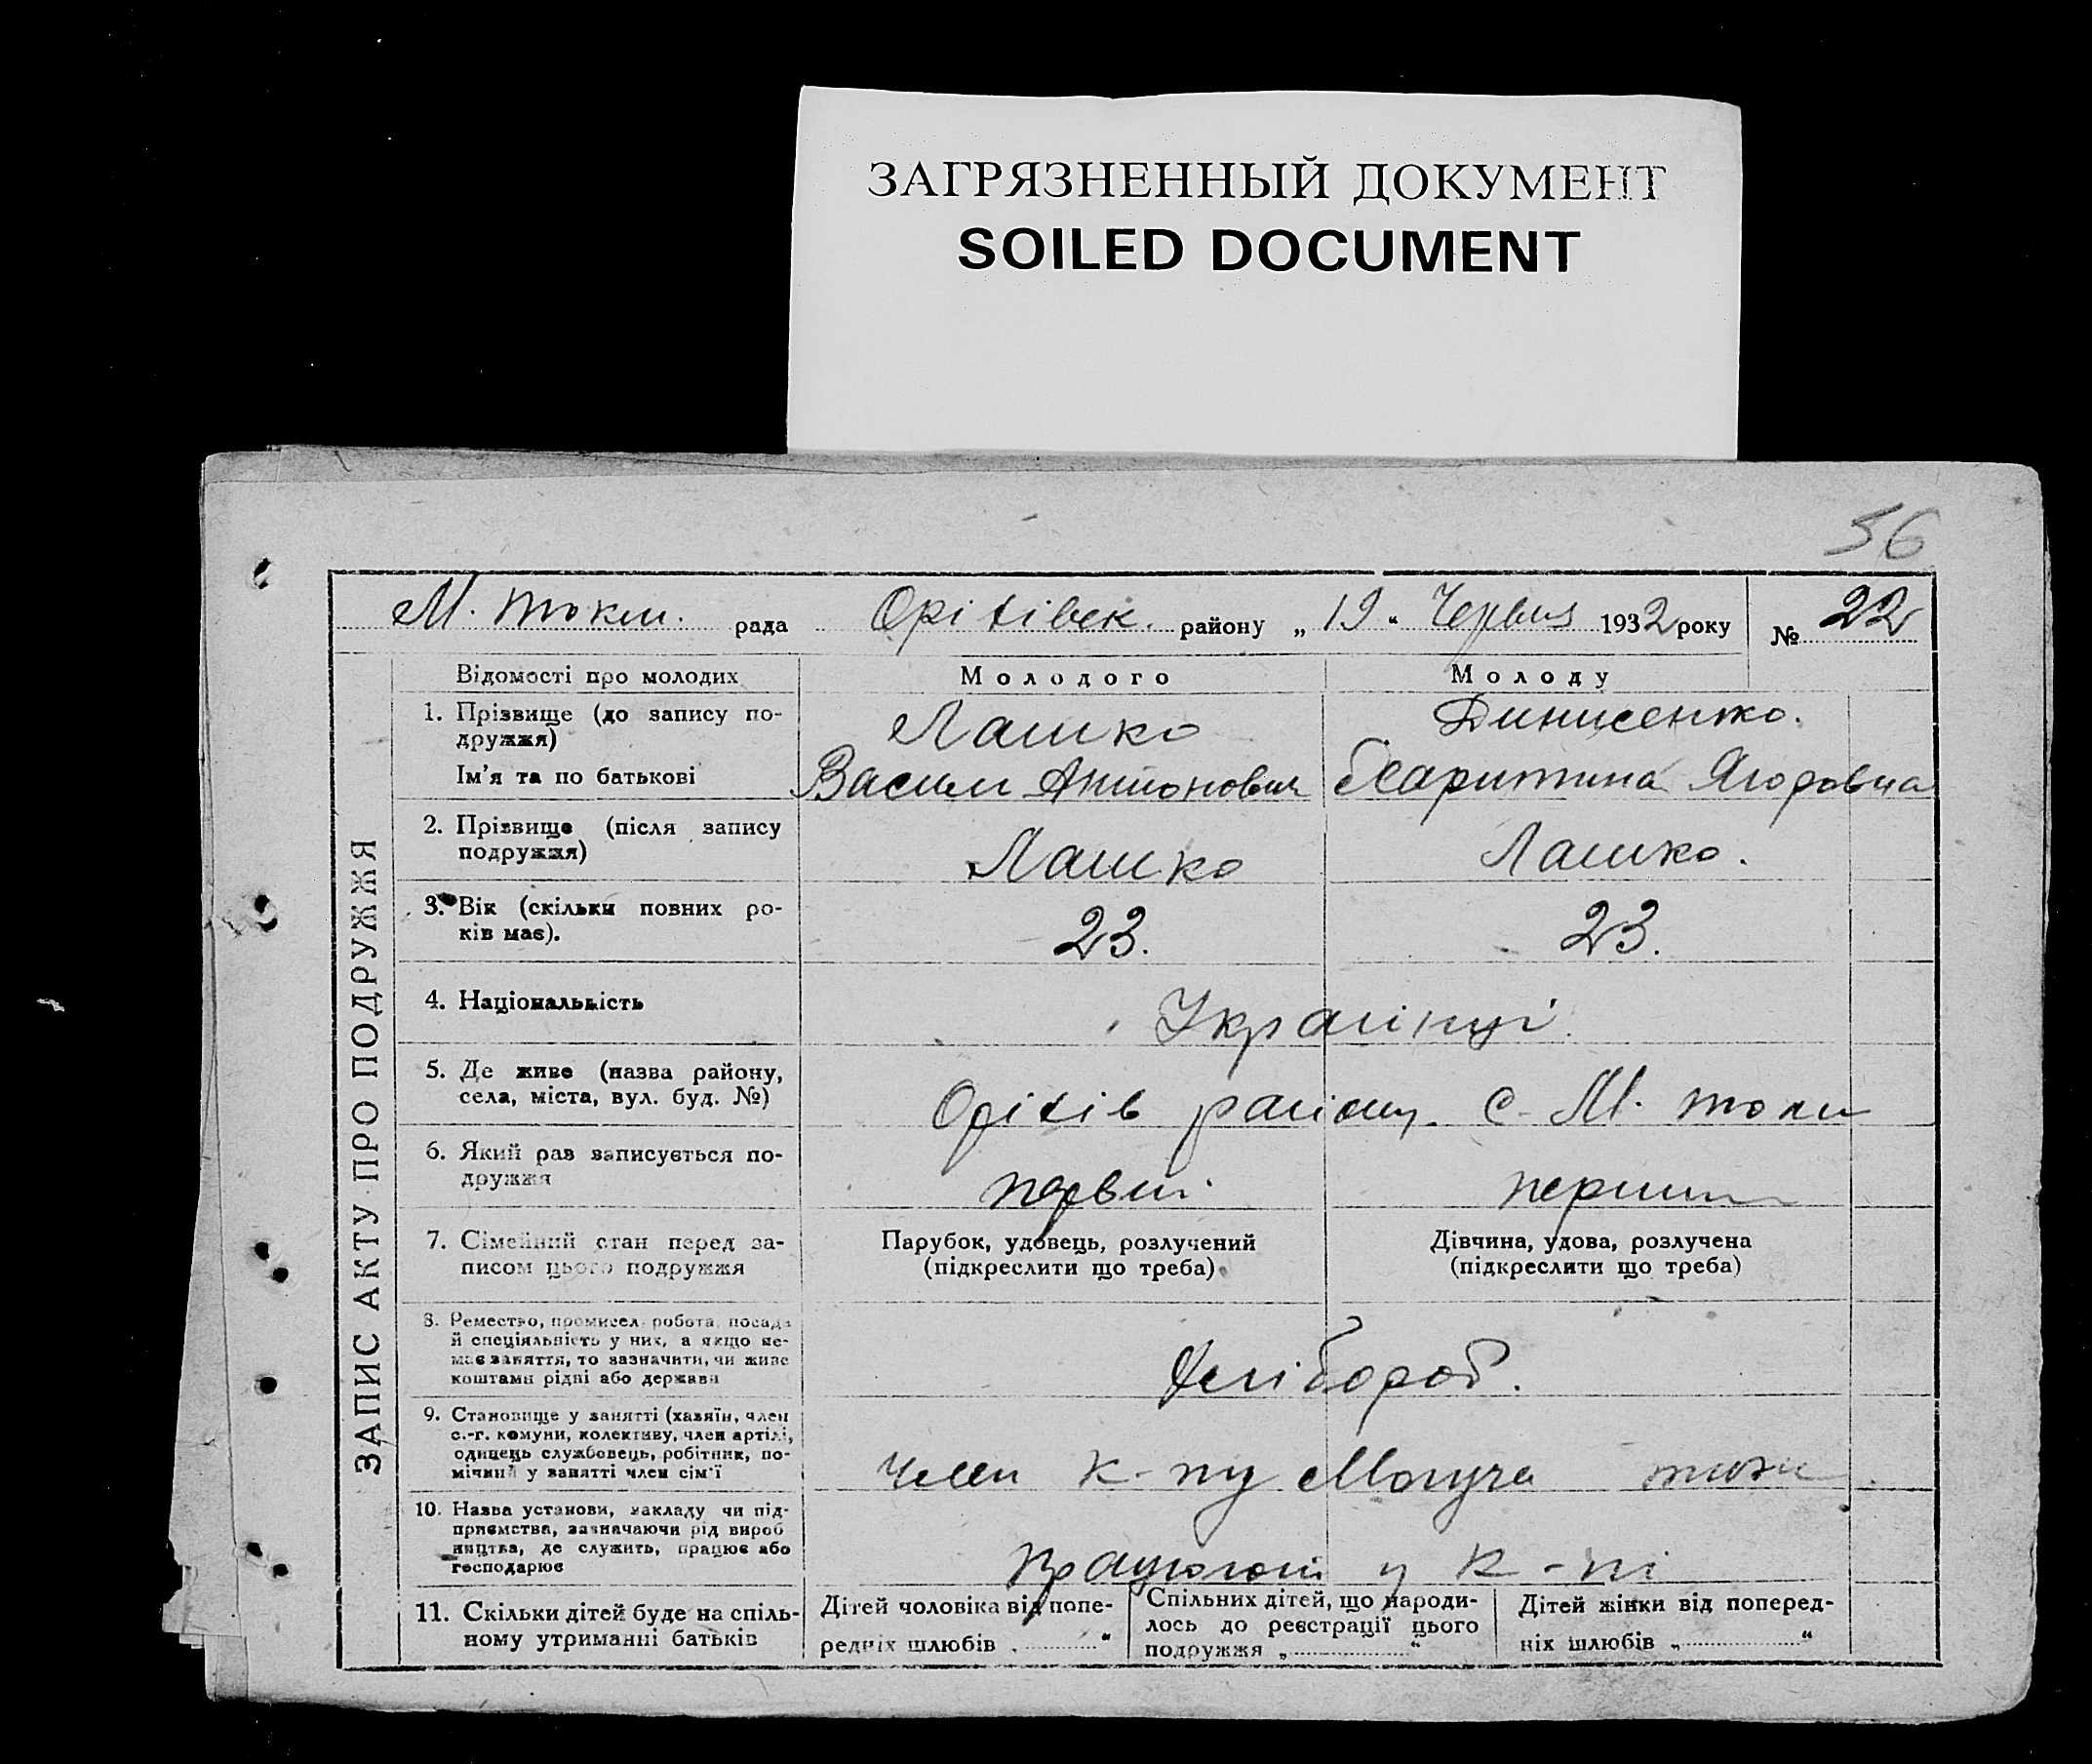 ЗАГРЯЗНЕННЫЙ ДОКУМЕНТ
SOILED DOCUMENT
56
М. Токм. рада Оріхівек. району „19" Червня 1932 року № 22
ЗАПИС АКТУ ПРО ПОДРУЖЖЯ
Відомості про молодих Молодого Молоду
1. Прізвище (до запису по-
дружжя) Лашко Динисенко.
Ім'я та по батькові Васил Антонович Харитина Ягоровна
2. Прізвище (після запису
подружжя) Лашко Лашко.
3. Вік (скільки повних ро-
ків має). 23. 23.
4. Національність Українці
5. Де живе (назва району,
села, міста, вул. буд. №) Оріхів району. с. М. Токм
6. Який раз записується по-
дружжя первий перший
7. Сімейний стан перед за-
писом цього подружжя
Парубок, удовець, розлучений
(підкреслити що треба)
Дівчина, удова, розлучена
(підкреслити що треба)
8. Ремество, промисел, робота, посада
й спеціяльність у них, а якщо не-
має заняття, то зазначити, чи живе
коштами рідні або держави
Хлібороб.
9. Становище у занятті (хазяїн, член
с.-г. комуни, колективу, член артілі,
одинець службовець, робітник, по-
мічний у занятті член сім'ї
Член к-пу Могуча
10. Назва установи, закладу чи під-
приємства, зазначаючи рід вироб
ництва, де служить, працює або
господарює
у к-пі
11. Скільки дітей буде на спіль-
ному утриманні батьків
Дітей чоловіка від попе-
редніх шлюбів „ "
Спільних дітей, що народи-
лось до реєстрації цього
подружжя „ "
Дітей жінки від поперед-
ніх шлюбів „ "